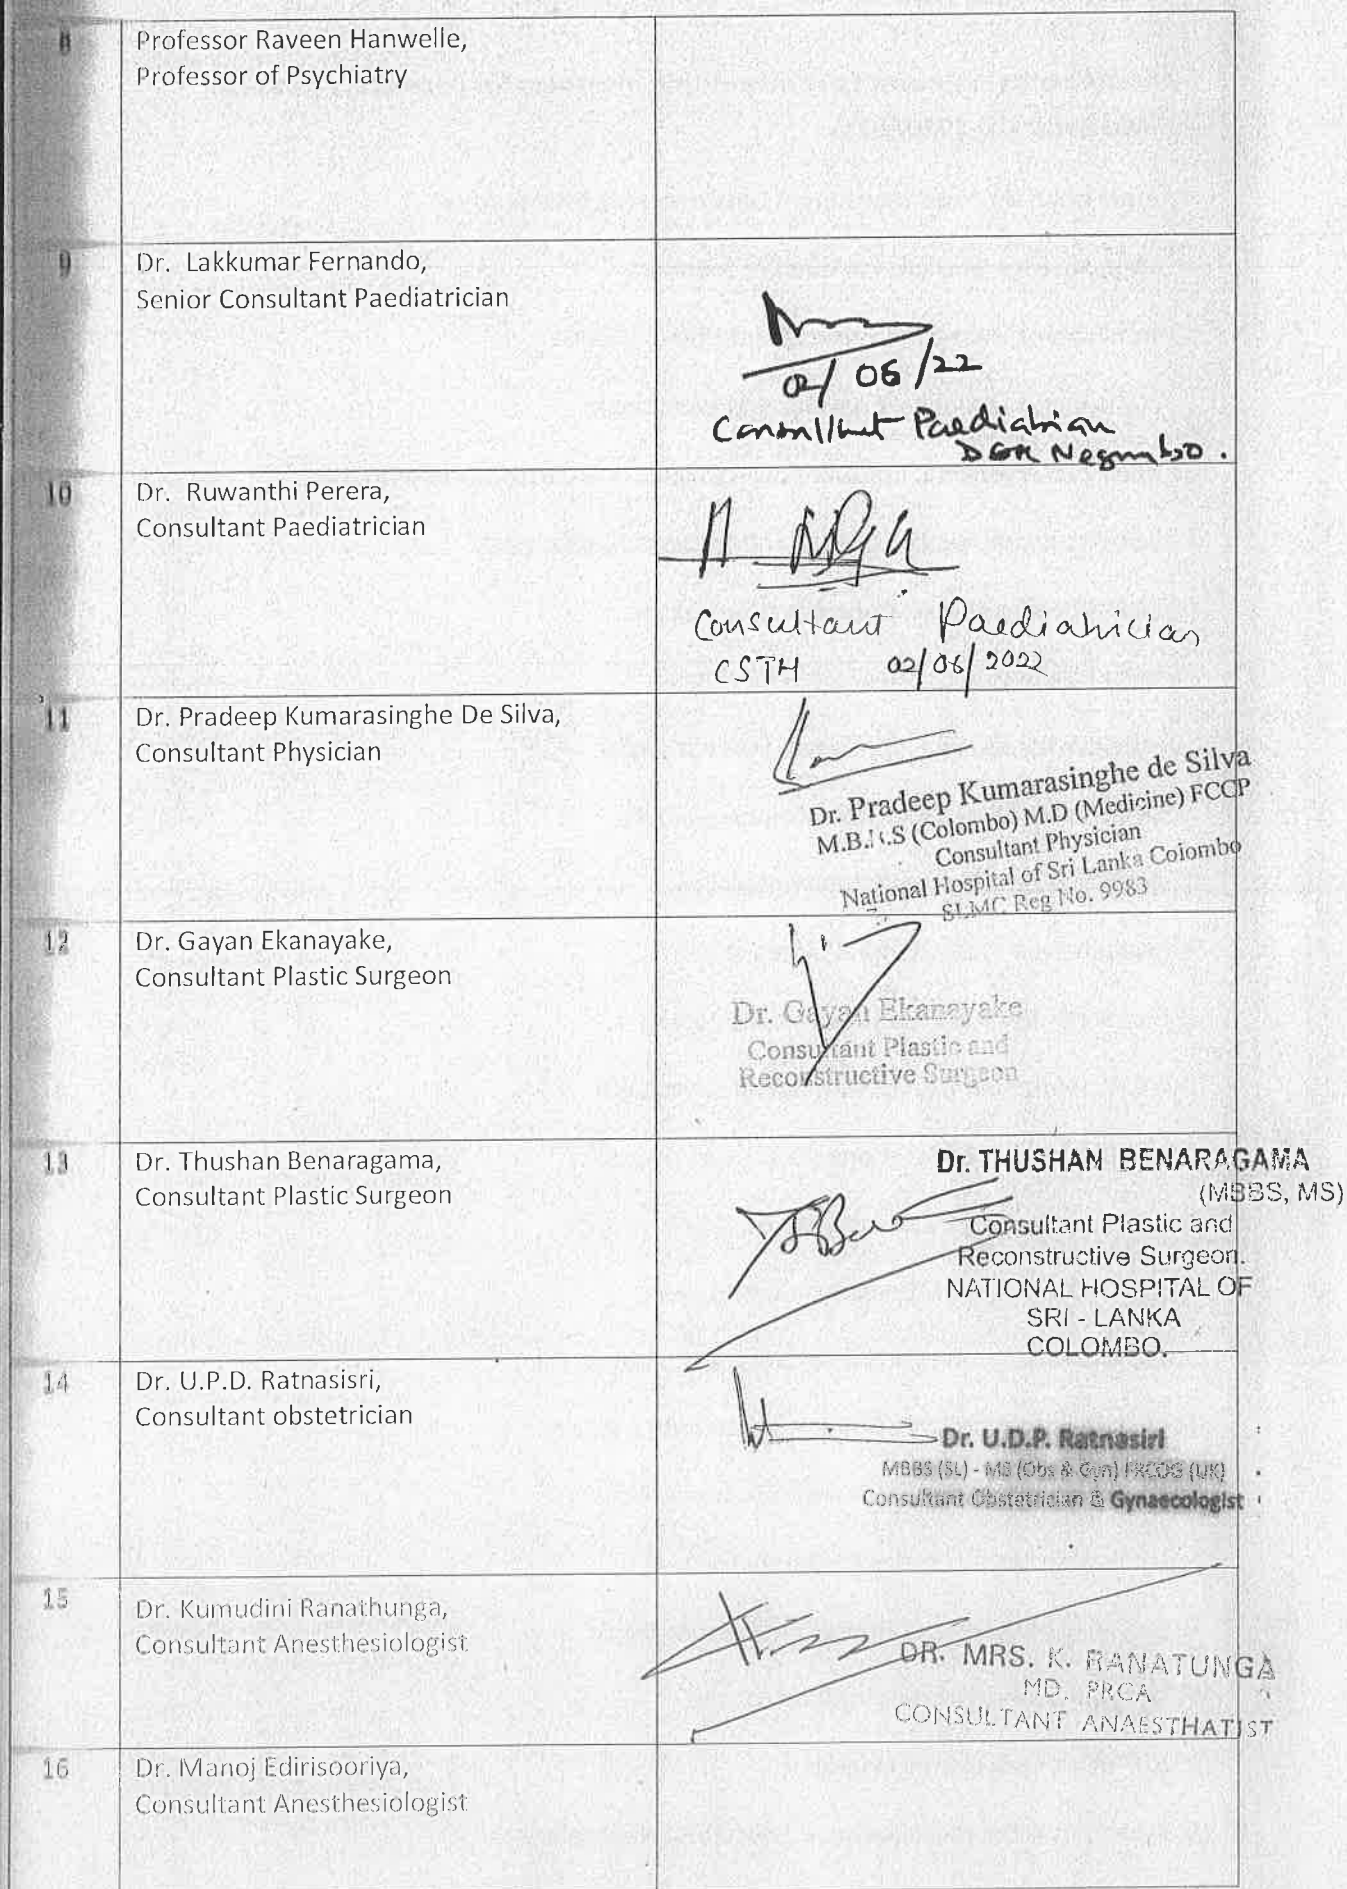 8 Professor Raveen Hanwelle,
Professor of Psychiatry
9 Dr. Lakkumar Fernando,
Senior Consultant Paediatrician
02/06/22
Consultant Paediatrician
Negombo.
10 Dr. Ruwanthi Perera,
Consultant Paediatrician
Consultant Paediatrician
CSTH 02/06/2022
11 Dr. Pradeep Kumarasinghe De Silva,
Consultant Physician
Dr. Pradeep Kumarasinghe de Silva
M.B.B.S (Colombo) M.D (Medicine) FCCP
Consultant Physician
National Hospital of Sri Lanka Colombo
SLMC Reg No. 9983
12 Dr. Gayan Ekanayake,
Consultant Plastic Surgeon
Dr. Gayan Ekanayake
Consultant Plastic and
Reconstructive Surgeon
13 Dr. Thushan Benaragama,
Consultant Plastic Surgeon
Dr. THUSHAN BENARAGAMA
(MBBS, MS)
Consultant Plastic and
Reconstructive Surgeon.
NATIONAL HOSPITAL OF
SRI - LANKA
COLOMBO.
14 Dr. U.P.D. Ratnasisri,
Consultant obstetrician
Dr. U.D.P. Ratnasiri
MBBS (SL) - MS (Obs & Gyn) FRCOG (UK)
Consultant Obstetrician & Gynaecologist
15 Dr. Kumudini Ranathunga,
Consultant Anesthesiologist
DR. MRS. K. RANATUNGA
MD. PRCA
CONSULTANT ANAESTHATIST
16 Dr. Manoj Edirisooriya,
Consultant Anesthesiologist